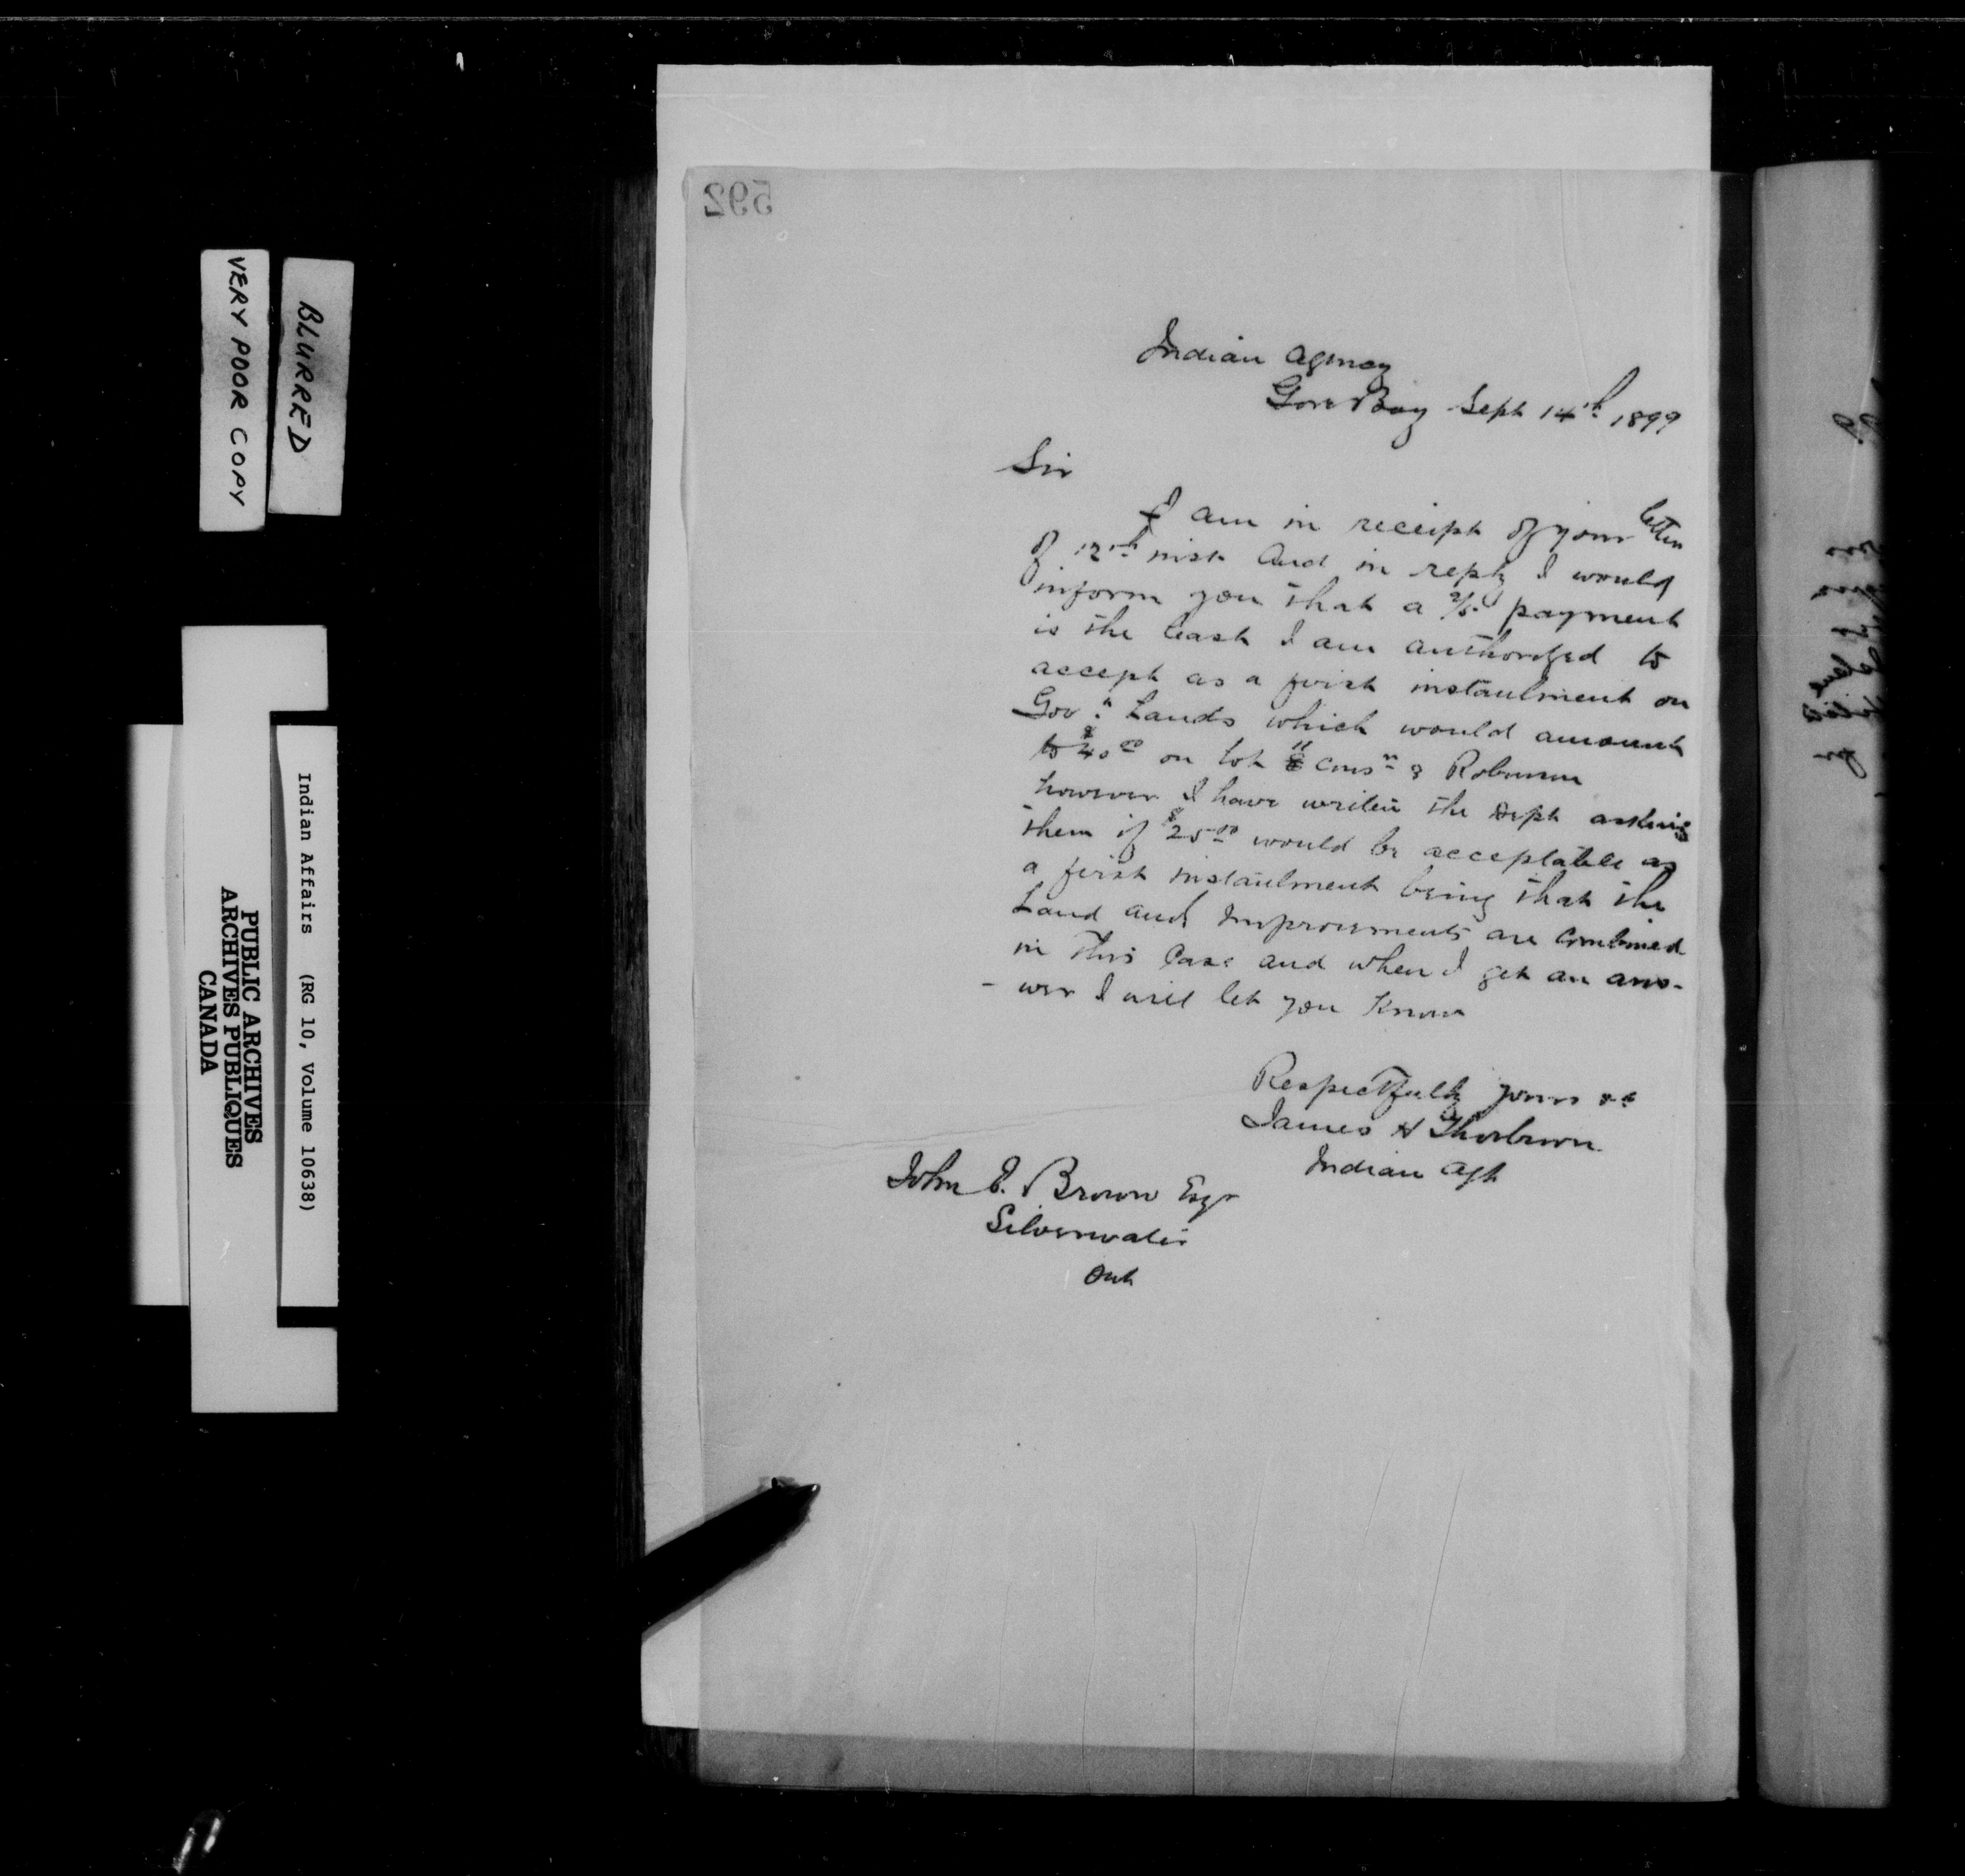 592
Indian Agency
Gore Bay Sept 14th 1899
Sir
I am in receipt of your letter
of 12th inst And in reply I would
inform you that a 2/5 payment
is the least I am authorized to
accept as a first instaulment on
Gov.t Lands which would amount
to $40 00 on Lot 11 Cons n 8 Robinson
however I have writen the Dept asking
them if $25 00 would be acceptable as
a first instaulment being that the
Land and Improvements are Combined
in this Case and when I get an ans-
- wer I will let you Know
Respectfully yours &c
James H Thorburn
Indian Agt
John J. Brown Esqr
Silverwater
Ont
BLURRED
VERY POOR COPY
Indian Affairs (RG 10, Volume 10638)
PUBLIC ARCHIVES
ARCHIVES PUBLIQUES
CANADA